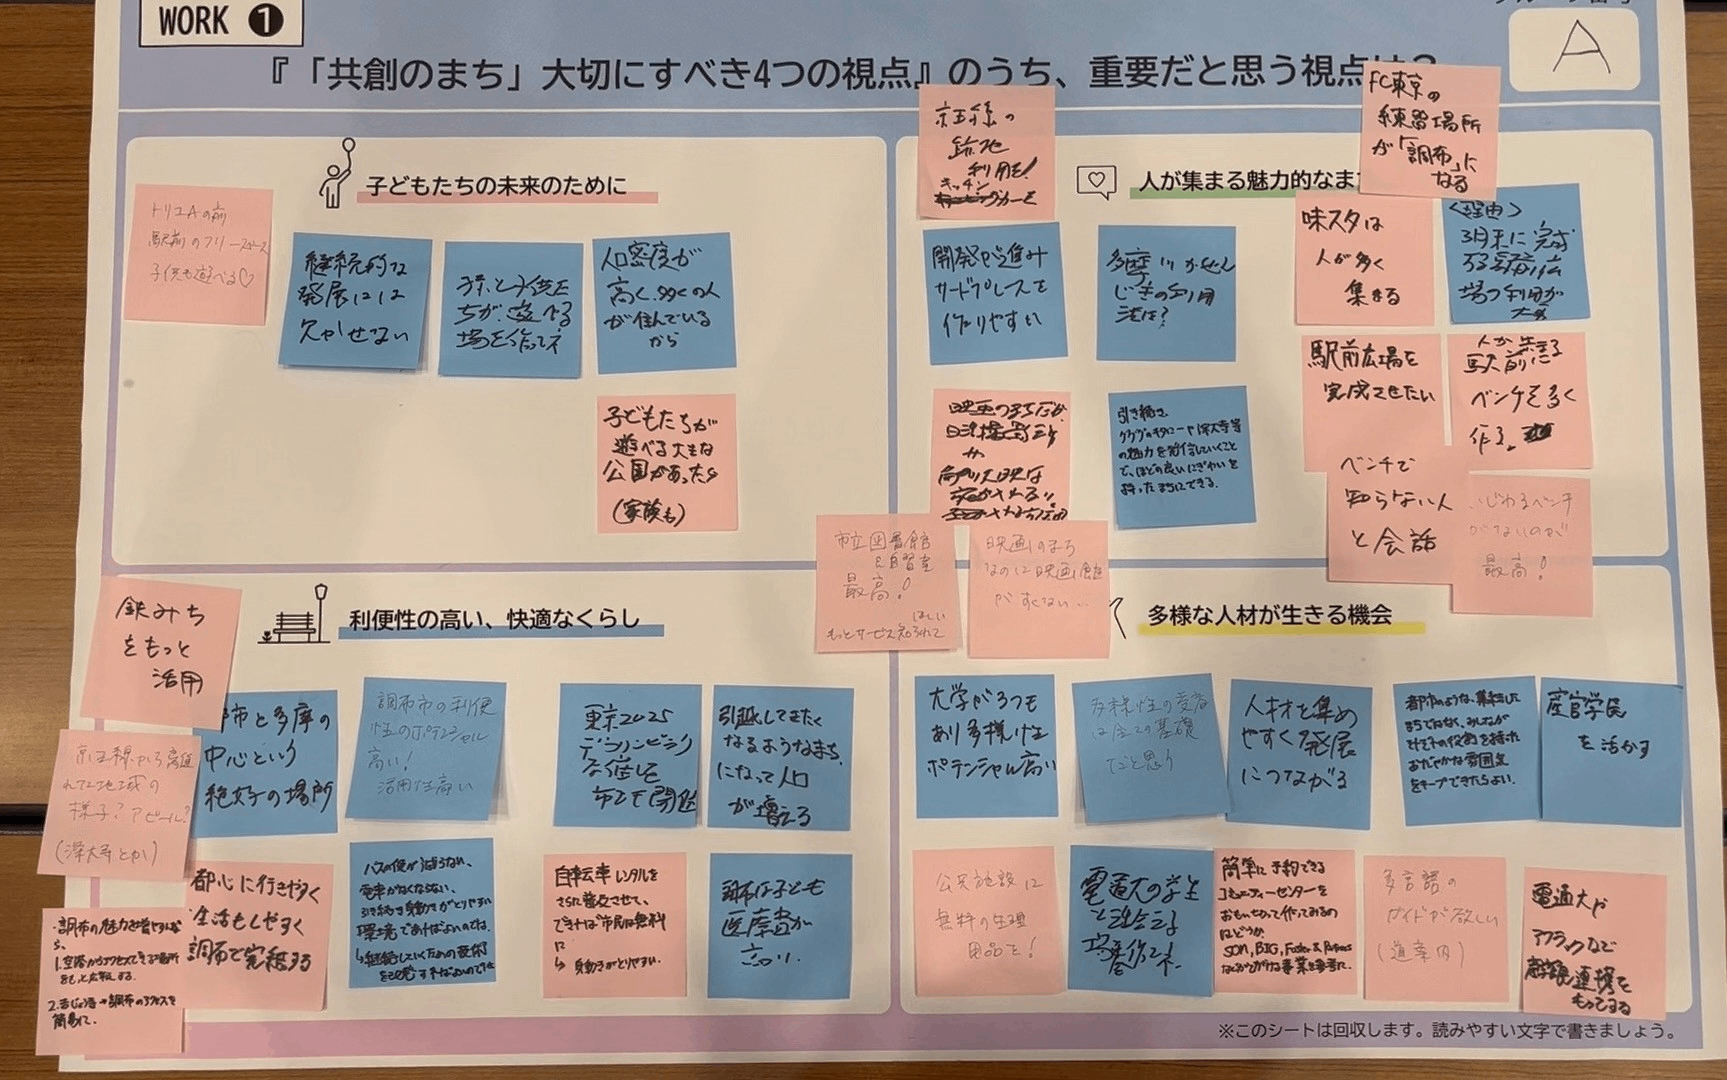 WORK 1
A
『「共創のまち」大切にすべき4つの視点』のうち、重要だと思う視点は?
子どもたちの未来のために
トリエAの前
駅前のフリースペース
子供も遊べる♡
継続的な
発展には
欠かせない
人口密度が
高く、多くの人
が住んでいる
から
子どもたちが
遊べる大きな
公園があったら
(家族も)
人が集まる魅力的なま
京王線の
跡地
利用を!
キッチン
カーを
FC東京の
練習場所
が「調布」に
なる
開発が進み
サードプレースを
作りやすい
味スタは
人が多く
集まる
<理由>
3月末に完成
駅前広場を
完成させたい
人が集まる
駅前に
ベンチを多く
作る。
引き続き、
の魅力を発信していくこと
で、ほどの良いにぎわいを
持ったまちにできる。
ベンチで
知らない人
と会話
いじわるベンチ
がないのが
最高!
市立図書館
&自習室
最高!
ほしい
もっとサービス知られて
映画のまち
なのに映画館
がすくない…
利便性の高い、快適なくらし
飲みち
をもっと
活用
市と多摩の
中心という
絶好の場所
調布市の利便
性のポテンシャル
高い!
活用性高い
東京2025
デフリンピック
引越してきたく
なるようなまち、
になって人口
が増える
京王線から離
れた地域の
様子?アピール?
(深大寺とか)
都心に行きやすく
生活もしやすく
調布で完結する
・調布の魅力を増やすなら、
1.空港からアクセスできる場所
をもっと広報する。
簡易に。
バスの便が減らない、
電車がなくならない、
引き続き身動きがとりやすい
環境であればよいのでは。
自転車レンタルを
さらに普及させて、
できれば市民は無料
に
↳身動きがとりやすい。
調布は子ども
医療費が
多様な人材が生きる機会
大学が3つも
あり多様性
ポテンシャル高い
多様性の受容
は全ての基礎
だと思う
人材を集め
やすく発展
につながる
都市のような、集結した
まちではなく、みんなが
それぞれの役割を持った
おだやかな雰囲気
をキープできたらよい。
産官学民
を活かす
公共施設に
無料の生理
用品を!
電通大の学生
と社会を
簡単に予約できる
コミュニティーセンターを
おもいきって作ってみるの
はどうか。
SOM, BIG, Foster & Partners
などがてがける事業を参考に。
多言語の
ガイドが欲しい
(道案内)
電通大や
アフラックなど
連携を
もってする
※このシートは回収します。読みやすい文字で書きましょう。